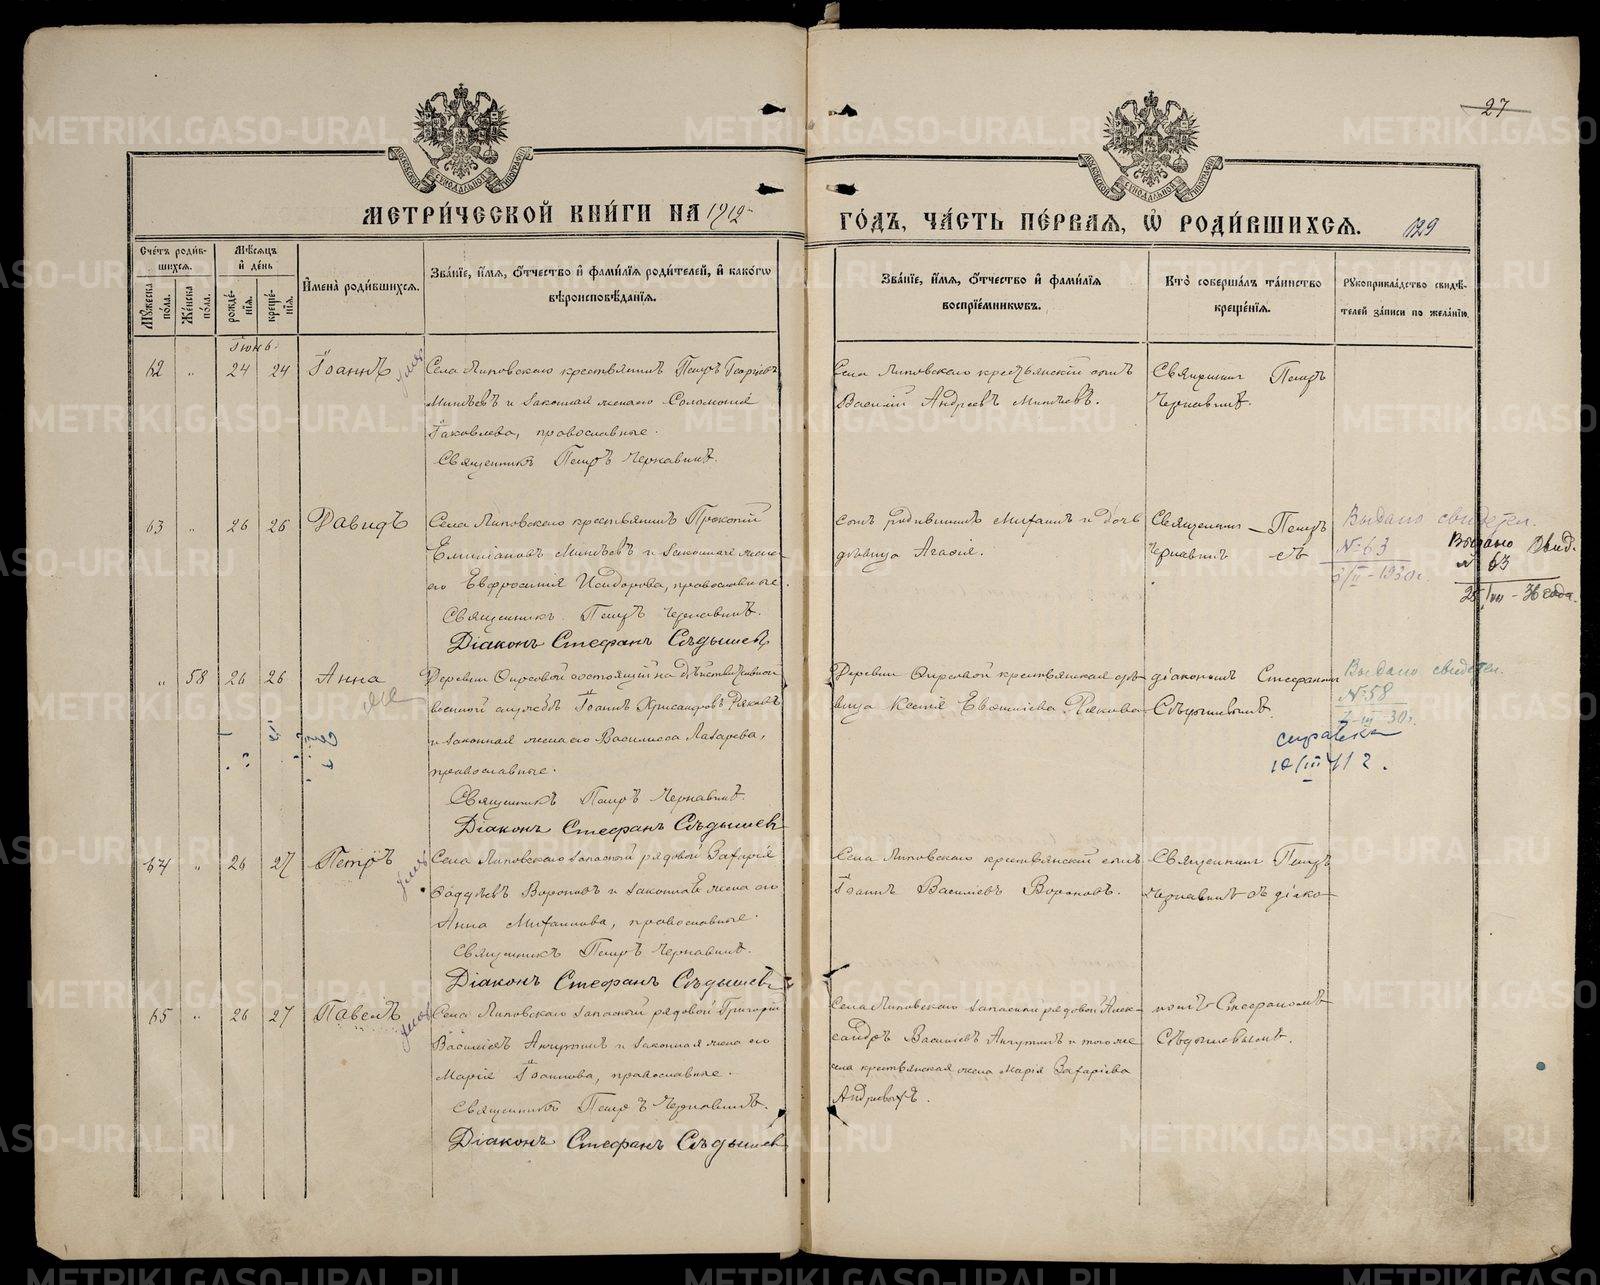 27
МОСКОВСКОЙ СУНОДАЛЬНОЙ ТИПОГРАФІИ
МОСКОВСКОЙ СУНОДАЛЬНОЙ ТИПОГРАФІИ
МЕТРИ́ЧЕСКОЙ КНИ́ГИ НА 1912
ГО́ДЪ, ЧА́СТЬ ПЕ́РВАѦ, Ѡ РОДИ́ВШИХСѦ. 129
Сче́тъ роди́в-
шихсѧ.
Мꙋ́жеска по́ла.
Же́нска по́ла.
Мѣ́сѧцъ
и҆ де́нь
рожде́-
нїѧ.
креще́-
нїѧ.
И҆мена̀ роди́вшихсѧ.
Зва́нїе, и҆́мѧ, ѻ҆́тчество и҆ фами́лїѧ роди́телей, и҆ како́гѡ
вѣроисповѣ́данїѧ.
Зва́нїе, и҆́мѧ, ѻ҆́тчество и҆ фами́лїѧ
воспрїе́мникѡвъ.
Кто̀ соверша́лъ та́инство
креще́нїѧ.
Рꙋкоприкла́дство свидѣ́-
телей за́писи по жела́нїю.
Іюнь.
62 " 24 24 Іоаннъ
Села Липовскаго крестьянинъ Петръ Георгіевъ
Минѣевъ и законная жена его Соломонія
Іаковлева, православные.
Священникъ Петръ Чернавинъ.
Села Липовскаго крестьянскій сынъ
Василій Андреевъ Минѣевъ.
Священникъ Петръ
Чернавинъ.
63 " 26 26 Давидъ
Села Липовскаго крестьянинъ Прокопій
Емиліановъ Минѣевъ и законная жена
его Евфросинія Исидорова, православные.
Священникъ Петръ Чернавинъ.
Діаконъ Стефанъ Сѣдышевъ
сынъ родившихъ Михаилъ и дочь
дѣвица Агафія.
Священникъ Петръ
Чернавинъ съ
Выдано свидетел.
№ 63
Выдано Свид.
№ 63
" 58 26 26 Анна
Деревни состоящій на дѣйствительной
военной службѣ Іоаннъ Хрисанфовъ Ряковъ
и законная жена его Василисса Лазарева,
православные.
Священникъ Петръ Чернавинъ.
Діаконъ Стефанъ Сѣдышевъ
Деревни крестьянская дѣ-
вица Ксенія Рякова
діакономъ Стефаномъ
Сѣдышевымъ.
Выдано свидетел.
№ 58
справка
64 " 26 27 Петръ
Села Липовскаго запасной рядовой Захарія
Фаддѣевъ Вороновъ и законная жена его
Анна Михаилова, православные.
Священникъ Петръ Чернавинъ.
Діаконъ Стефанъ Сѣдышевъ
Села Липовскаго крестьянскій сынъ
Іоаннъ Василіевъ Вороновъ.
Священникъ Петръ
Чернавинъ съ діако-
65 " 26 27 Павелъ
Села Липовскаго запасной рядовой Григорій
Василіевъ Анчутинъ и законная жена его
Марія Іоаннова, православные.
Священникъ Петръ Чернавинъ.
Діаконъ Стефанъ Сѣдышев
Села Липовскаго запасный рядовой Алек-
сандръ Василіевъ Анчутинъ и того же
села крестьянская жена Марія Захаріева
номъ Стефаномъ
Сѣдышевымъ.
METRIKI.GASO-URAL.RU